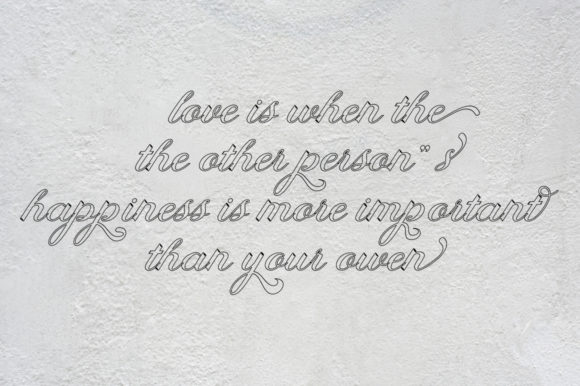 love is when the
the other person" s
happiness is more important
than your owen